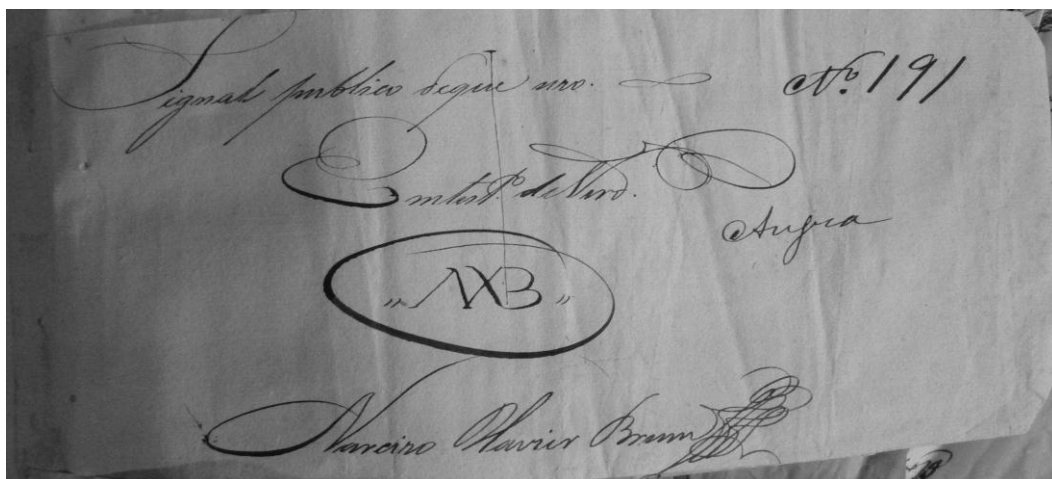 Signal publico de que uso. Nº. 191
Em test.º de Verd.
Angra
„ NXB „
Narcizo Xavier Brum